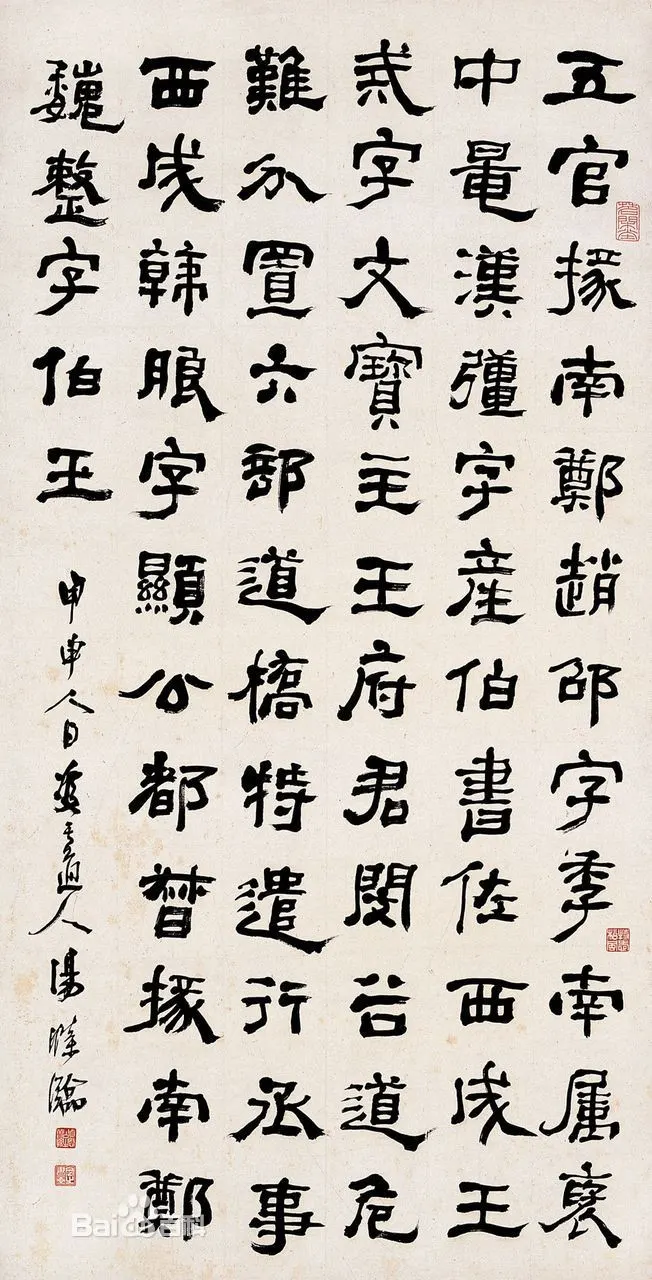 五官掾南鄭趙邵字季南属褒
中鼂漢彊字産伯書佐西成王
戒字文寶主王府君閔谷道危
難分置六部道橋特遣行丞事
西成韓朖字顯公都督掾南鄭
魏整字伯玉
甲申人日道人湯
Baidu百科